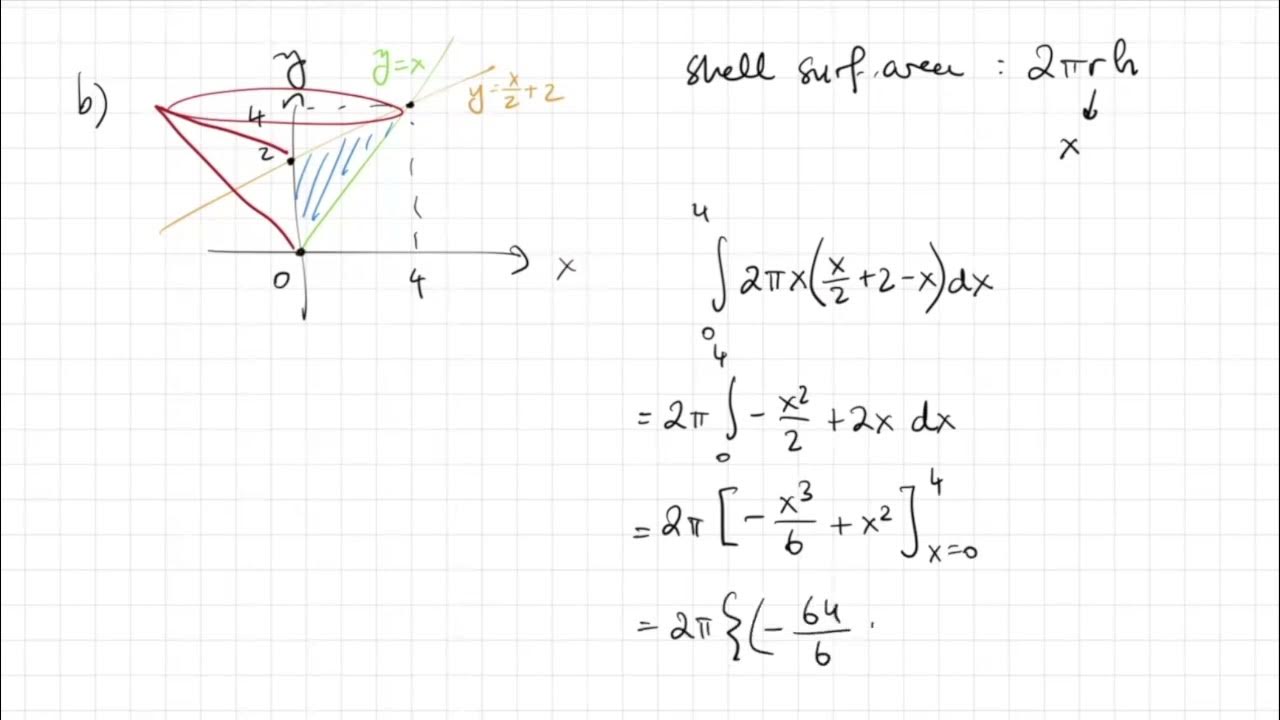 b)
y
y=x
y=x/2+2
4
2
0
4
x
shell surf. area : 2πrh
↓
x
∫₀⁴ 2πx(x/2+2-x)dx
= 2π ∫₀⁴ - x²/2 + 2x dx
= 2π [- x³/6 + x²]⁴ₓ₌₀
= 2π {(- 64/6